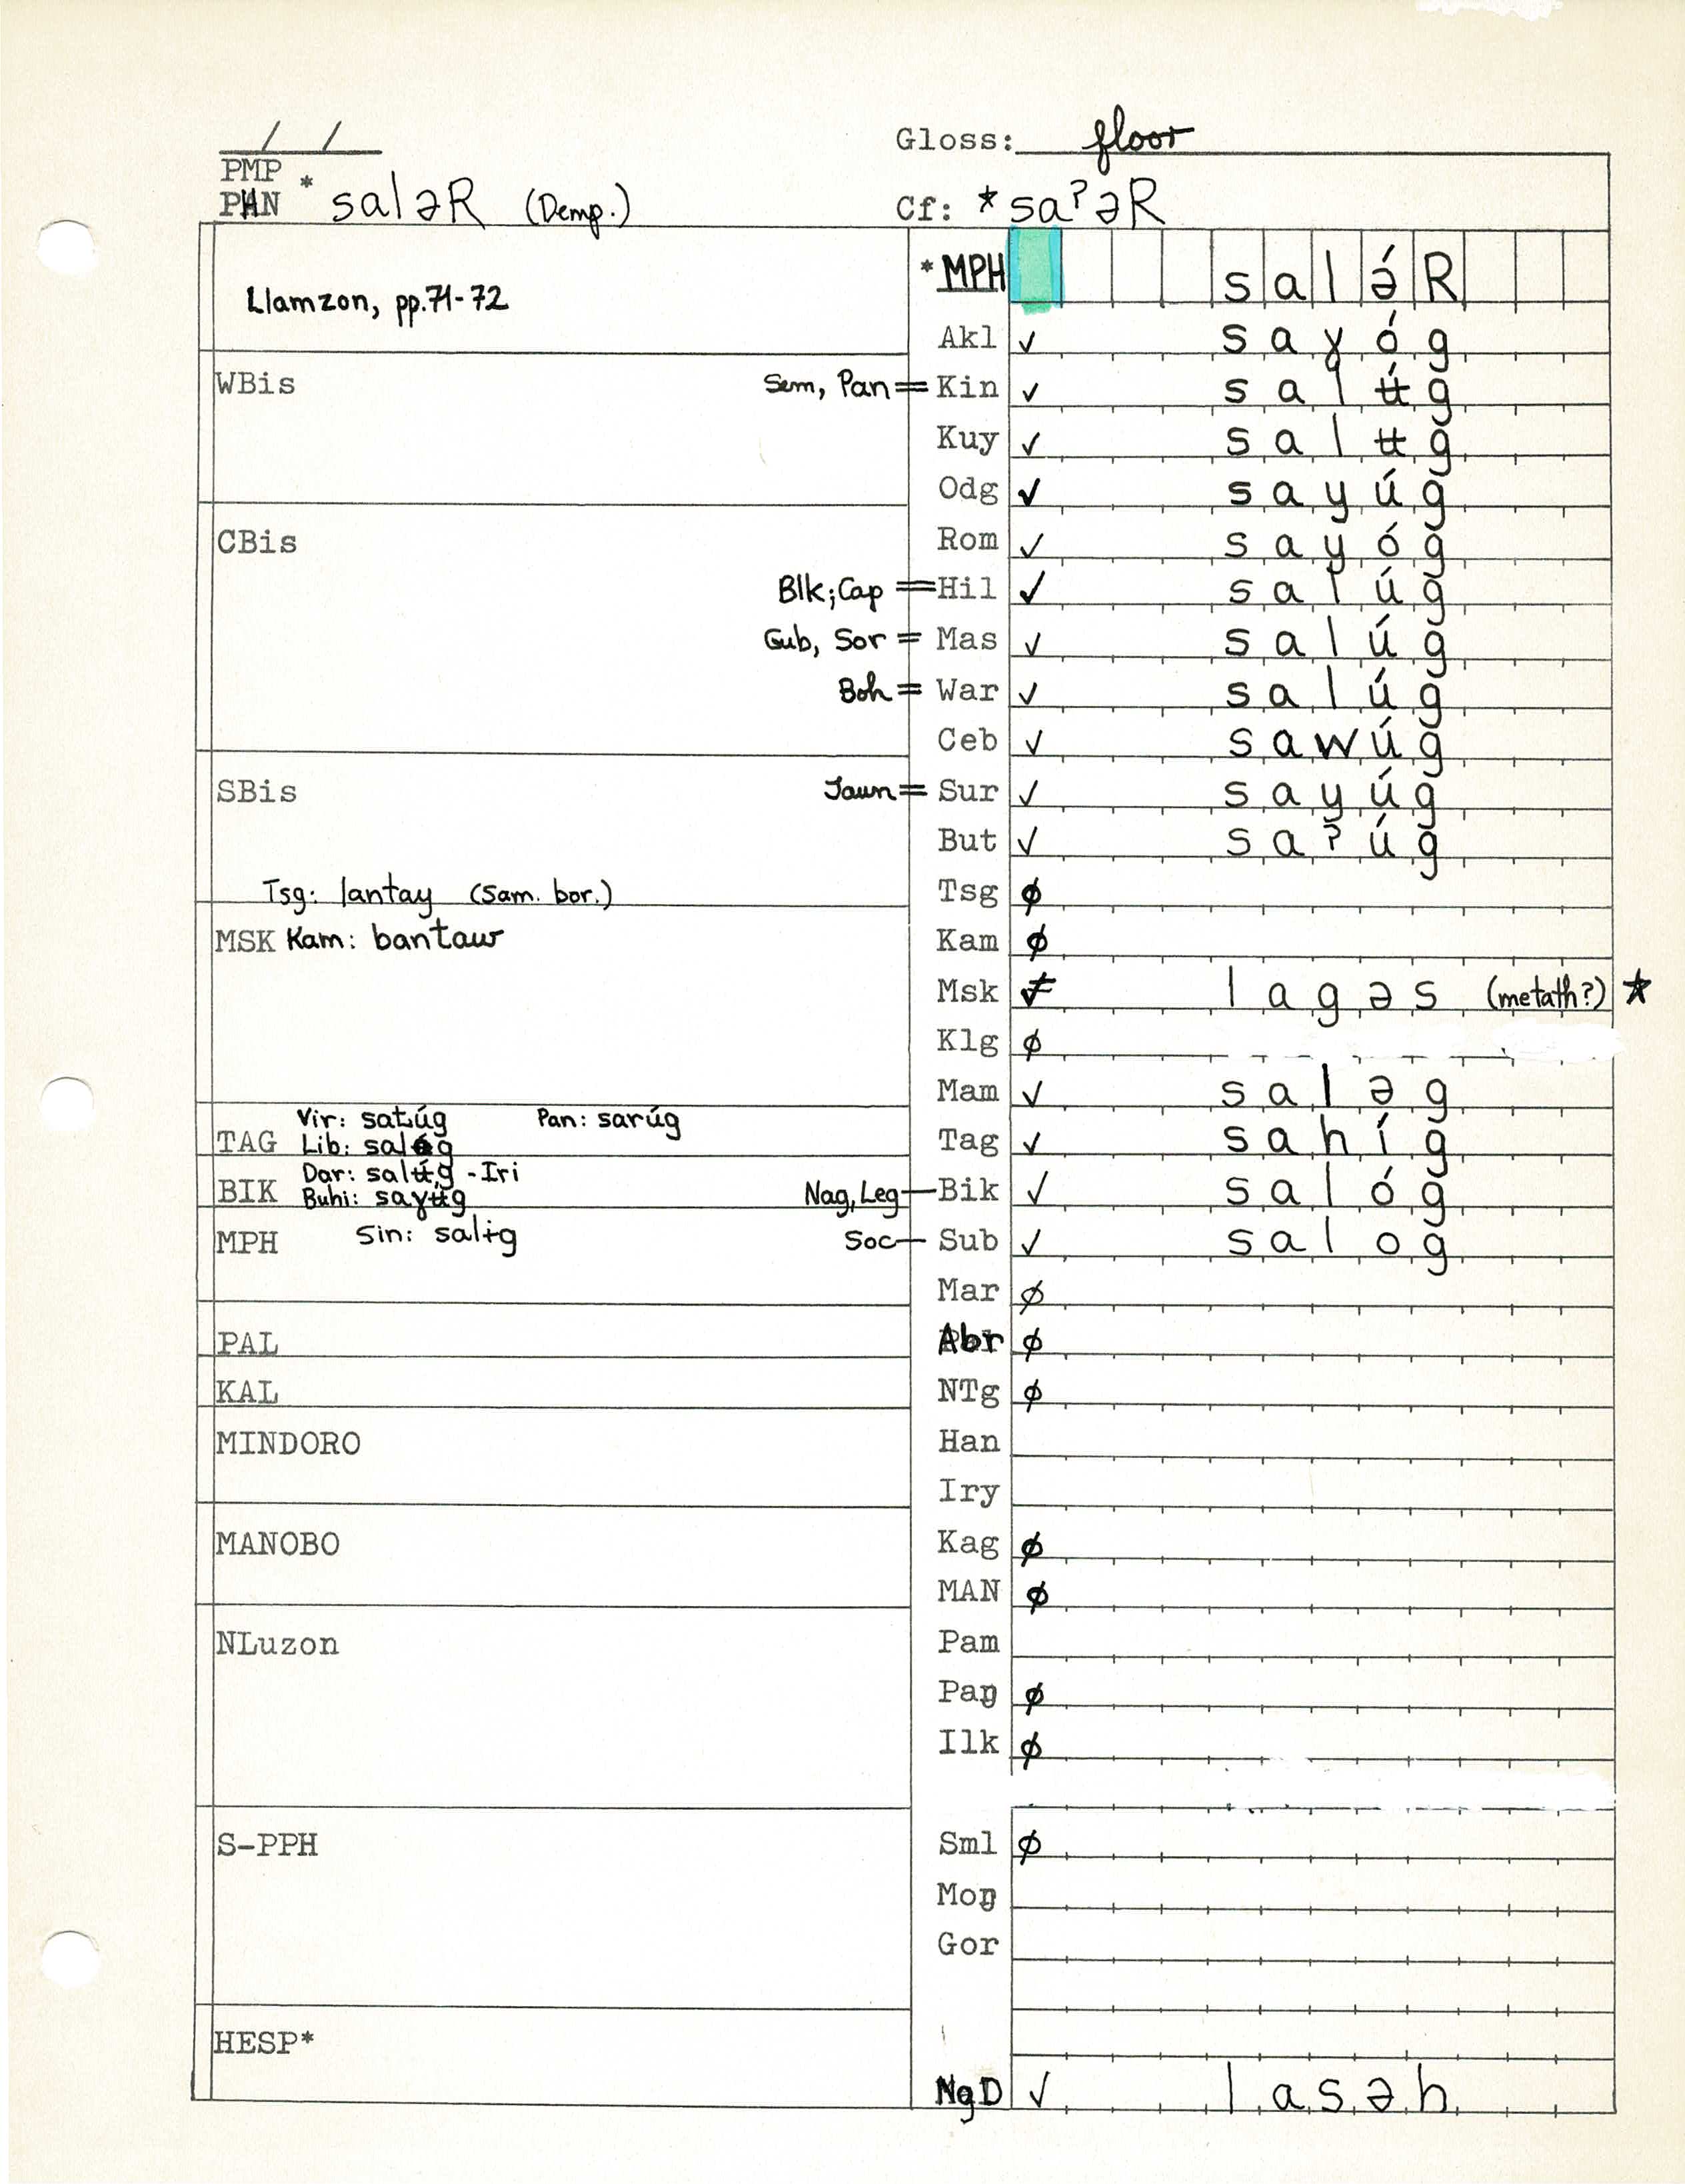 / /
Gloss: floor
PMP
PAN * saləR (Demp.)
Cf: *saʔəR
Llamzon, pp. 71-72
*MPH salə́R
Akl ✓ saɣóg
WBis
Sem, Pan = Kin ✓ salʉ́g
Kuy ✓ salʉg
Odg ✓ sayúg
CBis
Rom ✓ sayóg
Blk; Cap = Hil ✓ salúg
Gub, Sor = Mas ✓ salúg
Boh = War ✓ salúg
Ceb ✓ sawúg
SBis
Jaun = Sur ✓ sayúg
But ✓ saʔúg
Tsg: lantay (Sam. bor.)
Tsg ø
MSK Kam: bantaw
Kam ø
Msk ≠ lagəs (metath?) ★
Klg ø
Mam ✓ saləg
Vir: Pan: sarúg
TAG Lib:
Tag ✓ sahíg
Dar: salʉ́g - Iri
BIK Buhi: saɣʉg
Nag, Leg — Bik ✓ salóg
MPH Sin: salɨg
Soc — Sub ✓ salog
Mar ø
PAL
Abr ø
KAL
NTg ø
MINDORO
Han
Iry
MANOBO
Kag ø
MAN ø
NLuzon
Pam
Paŋ ø
Ilk ø
S-PPH
Sml ø
Moŋ
Gor
HESP*
NgD ✓ lasəh